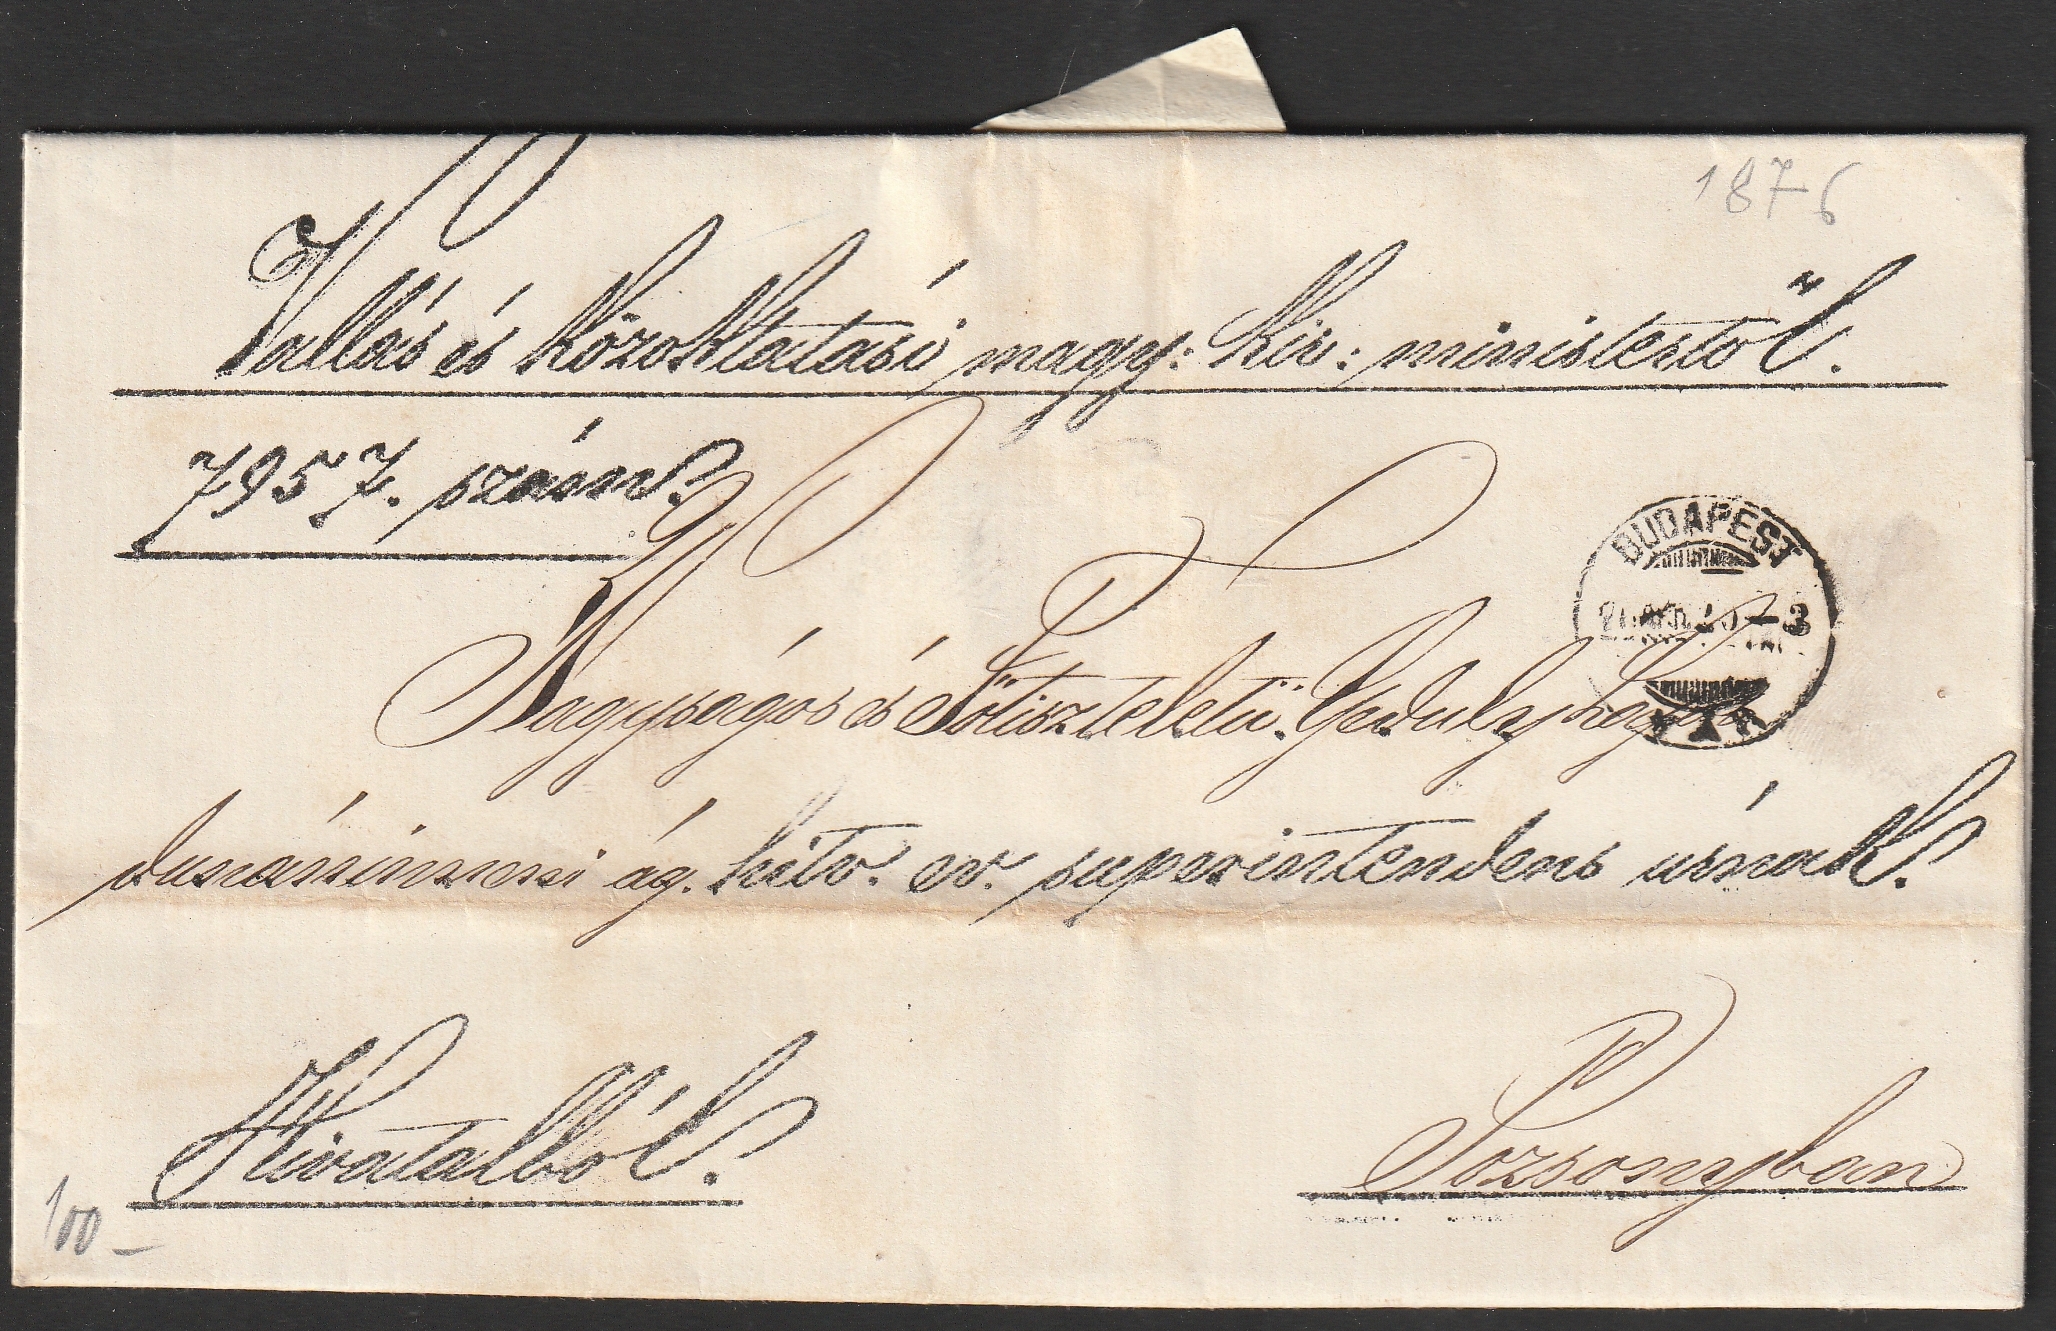 1876
Vallás és közoktatási magy: kir: ministertől.
7957. szám.
BUDAPEST
VÁR
Nagyságos és Főtiszteletü Geduly Lajos
dunáninneni ág. hitv. ev. superintendens úrnak.
Hivatalból.
Pozsonyban
100 –